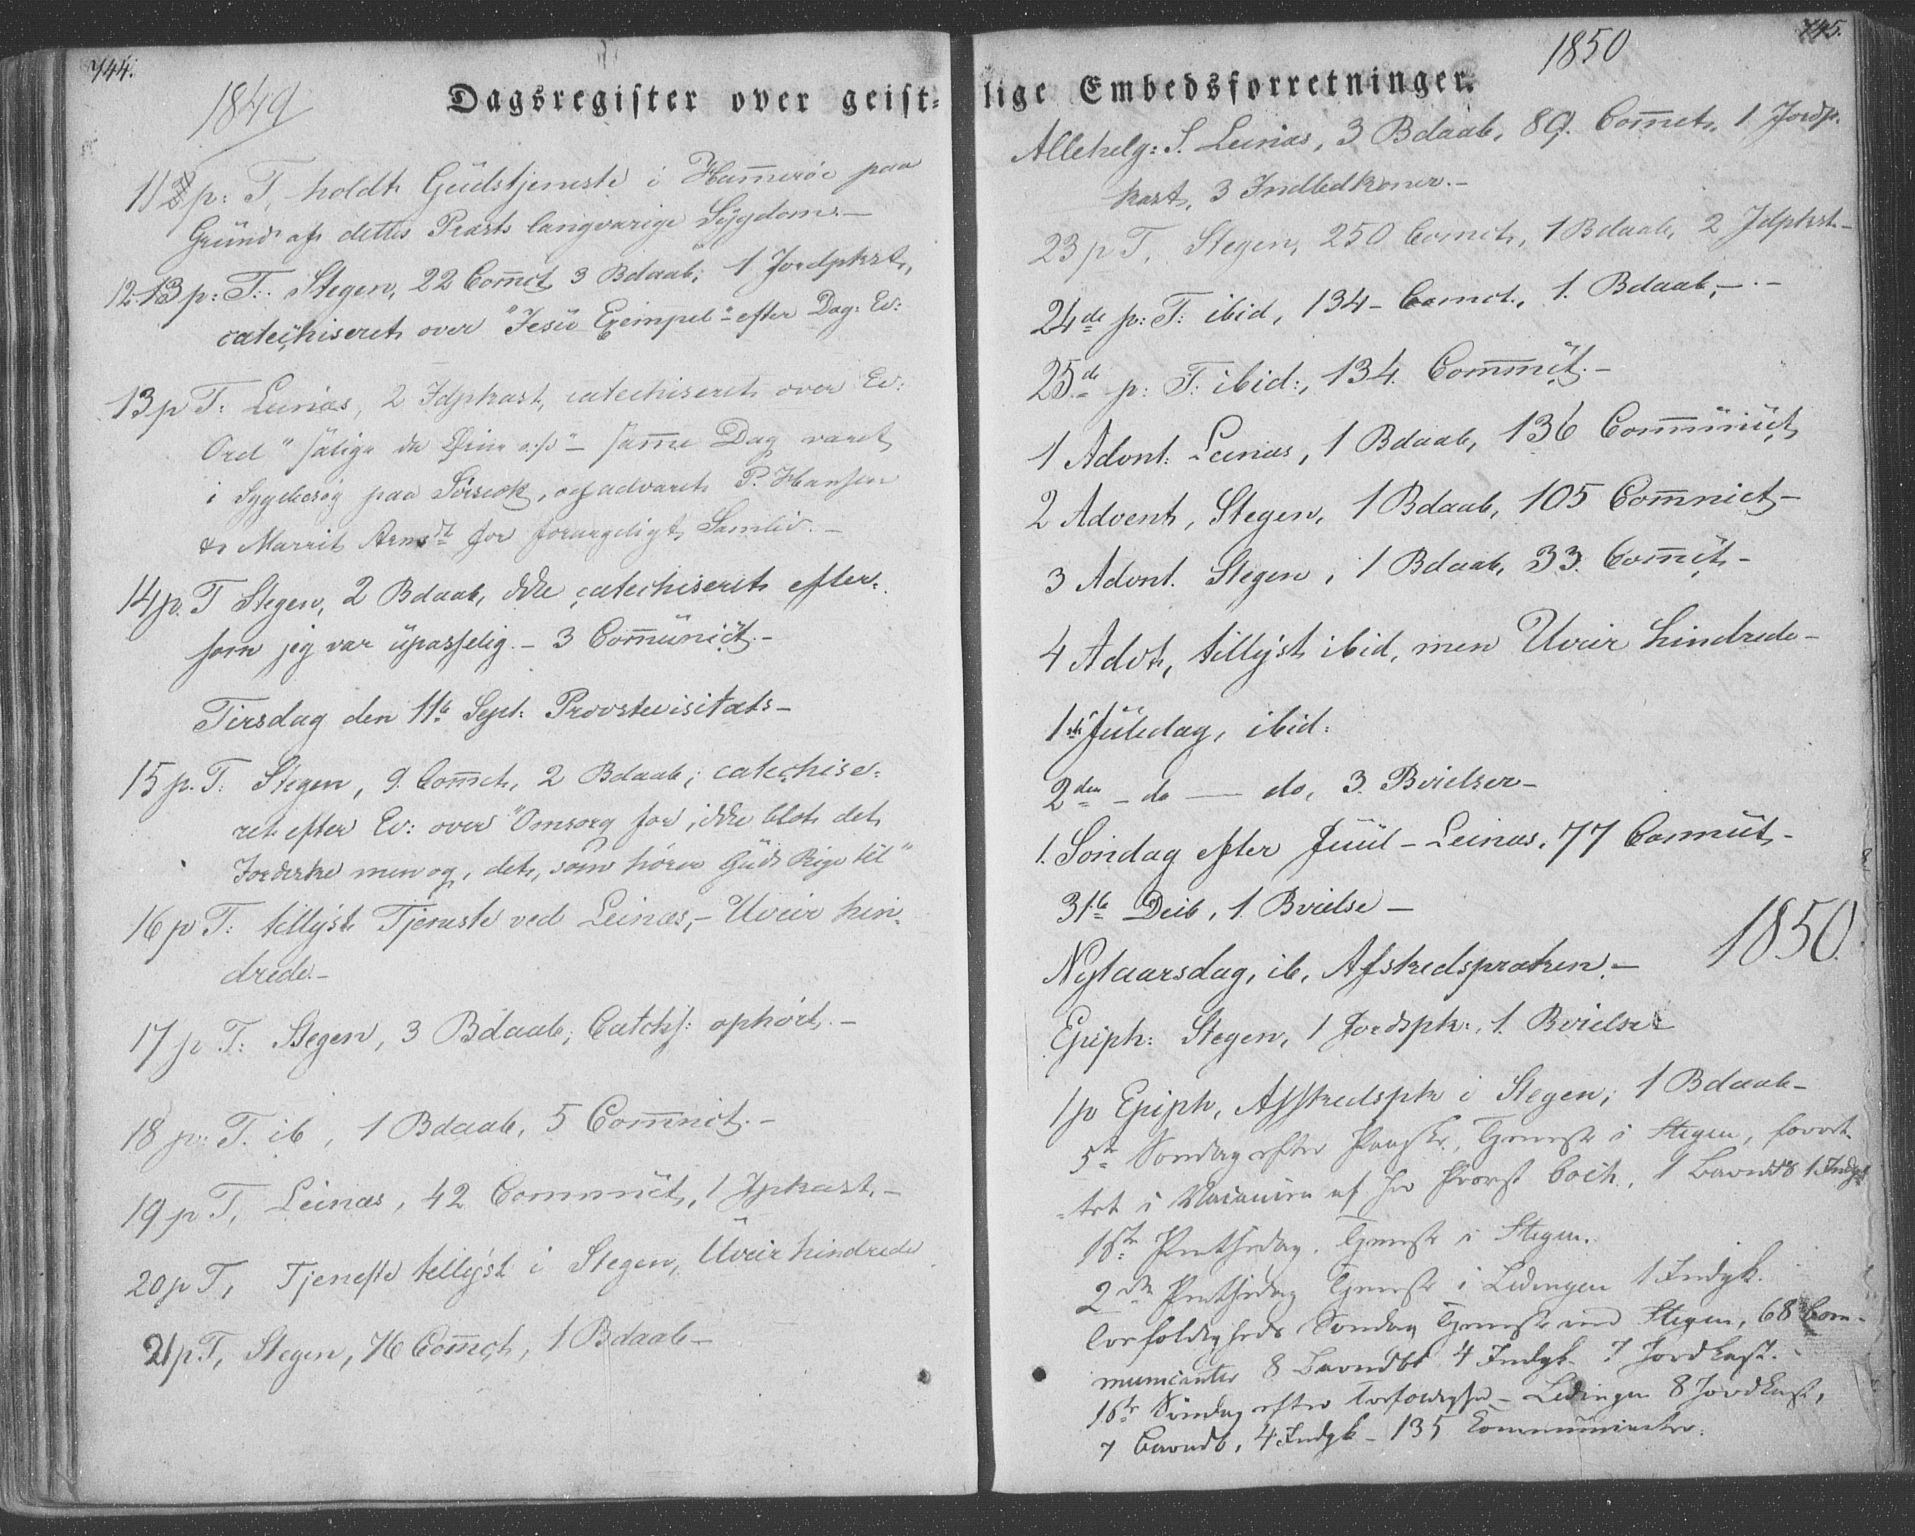 744.
1849
Dagsregister over geist-
11 p: T, holdt Gudstjeneste i Hammerøe paa
Grund af dettes Præsts langvarige Sygdom.-
12 p: T: Stegen, 22 Com̄ct, 3 Bdaab, 1 Jordpkst,
catechiseret over "Jesu Exempel" efter Dag: Ev:
13 p T: Leinæs, 2 Jdpkast, catechiseret over Ev:
Ord "salige de Øine" - sam̄e Dag været
i Sygebesøg paa, og advaret P. Hansen
& Marrit for forargeligt Samliv.-
14 p. T Stegen, 2 Bdaab, ikke catechiseret efter-
som jeg var upasselig.- 3 Com̄unict.-
Tirsdag den 11te Sept: Provstevisitats-
15 p. T: Stegen, 9 Com̄ct, 2 Bdaab; catechise-
ret efter Ev: over "Omsorg for, ikke blot det
Jordiske men og, det, som hører Guds Rige til"
16 p T: tillyst Tjeneste ved Leinæs,- Uveir hin-
drede.-
17 p T: Stegen, 3 Bdaab; Catchs: ophört.-
18 p: T. ib, 1 Bdaab, 5 Com̄nict.-
19 p T, Leinæs, 42 Commuct, 1 Jpkast,-
20 p T, Tjeneste tillyst i Stegen, Uveir hindrede
21 p T, Stegen, 76 Com̄ct, 1 Bdaab-
745.
1850
lige Embedsforretninger.
Allehelg: S. Leinæs, 3 Bdaab, 89. Com̄ct, 1 Jordp.
kast, 3 Indledkoner.-
23 p T, Stegen, 250 Comct, 1 Bdaab, 2 Jdpkst-
24de p: T: ibid, 134- Comct., 1. Bdaab,-.-
25de p: T: ibid:, 134. Com̄ct.-
1 Advnt: Leinæs, 1 Bdaab, 136 Com̄unict
2 Advent, Stegen, 1 Bdaab, 105 Com̄nict-
3 Advnt. Stegen, 1 Bdaab, 33. Com̄ct-
4 Advt, tillyst ibid, men Uveir hindrede-
1ste Juledag, ibid.
2den - do - do, 3. Bvielser-
1. Søndag efter Juul - Leinæs, 77 Comuct-
31te Decb, 1. Bvielse -
1850.
Nytaarsdag, ib, Afskedspræken.-
Epiph: Stegen, 1 Jordspk:, 1. Bvielse
1 p Epiph, Afskedspk i Stegen; 1 Bdaab-
5te Søndag efter Paaske, Tjeneste i Stegen, forret-
-tet i Vacancen af Hr Provst Coch, 1 Barnedb 1 Indgk
1ste Pintsedag. Tjeneste i Stegen.
2den Pintsedag Tjeneste i Ledingen 1 Indgk.
Trefoldigheds Søndag Tjeneste ved Stegen, 68 Com-
municanter 8 Barnedb 4 Indgk. 7 Jordkast.
1ste Søndag efter Trefoldighed - Ledingen 8 Jordkast,
7 Barnedb, 4 Indgk - 135 Communicanter.